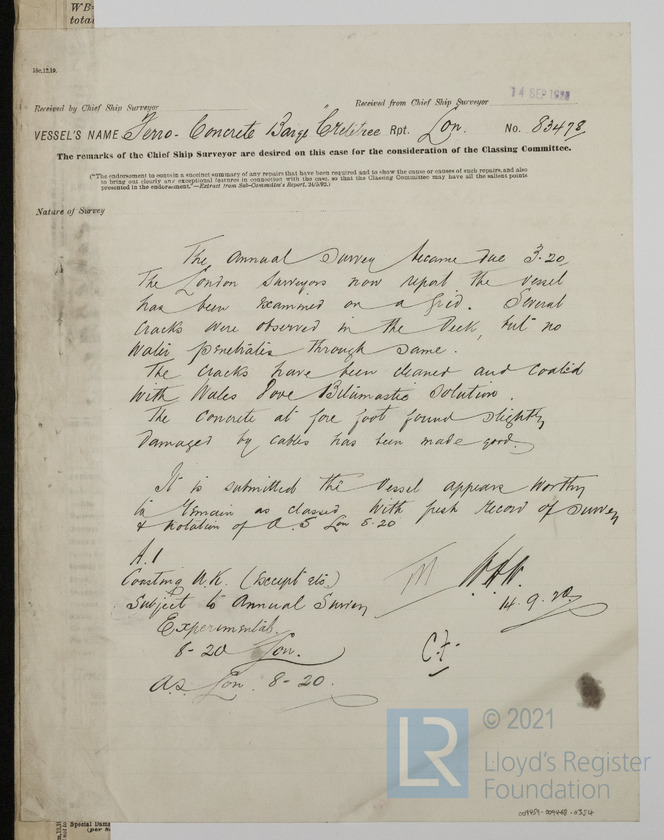 WB=
tota
18c,12,19.
14 SEP 1920
Received by Chief Ship Surveyor
Received from Chief Ship Surveyor
VESSEL'S NAME Ferro-Concrete Barge "Cretetree Rpt. Lon. No. 83478
The remarks of the Chief Ship Surveyor are desired on this case for the consideration of the Classing Committee.
("The endorsement to contain a succinct summary of any repairs that have been required and to show the cause or causes of such repairs, and also
to bring out clearly any exceptional features in connection with the case, so that the Classing Committee may have all the salient points
presented in the endorsement."—Extract from Sub-Committee's Report, 24/5/92.)
Nature of Survey
The Annual Survey became due 3.20.
The London Surveyors now report the vessel
has been examined on a grid. Several
cracks were observed in the Deck, but no
water penetrates through same.
The cracks have been cleaned and coated
with Wales Dove Bitumastic Solution.
The concrete at fore foot found slightly
damaged by cables has been made good.
It is submitted the vessel appears worthy
to remain as classed with fresh record of survey
& notation of A.S Lon 8-20
A.1
Coasting U.K. (except etc.)
Subject to Annual Survey
Experimental.
8-20 Lon.
A.S. Lon. 8-20.
14.9.20
LR
© 2021
Lloyd's Register
Foundation
Special Dam
009459-009468-0354